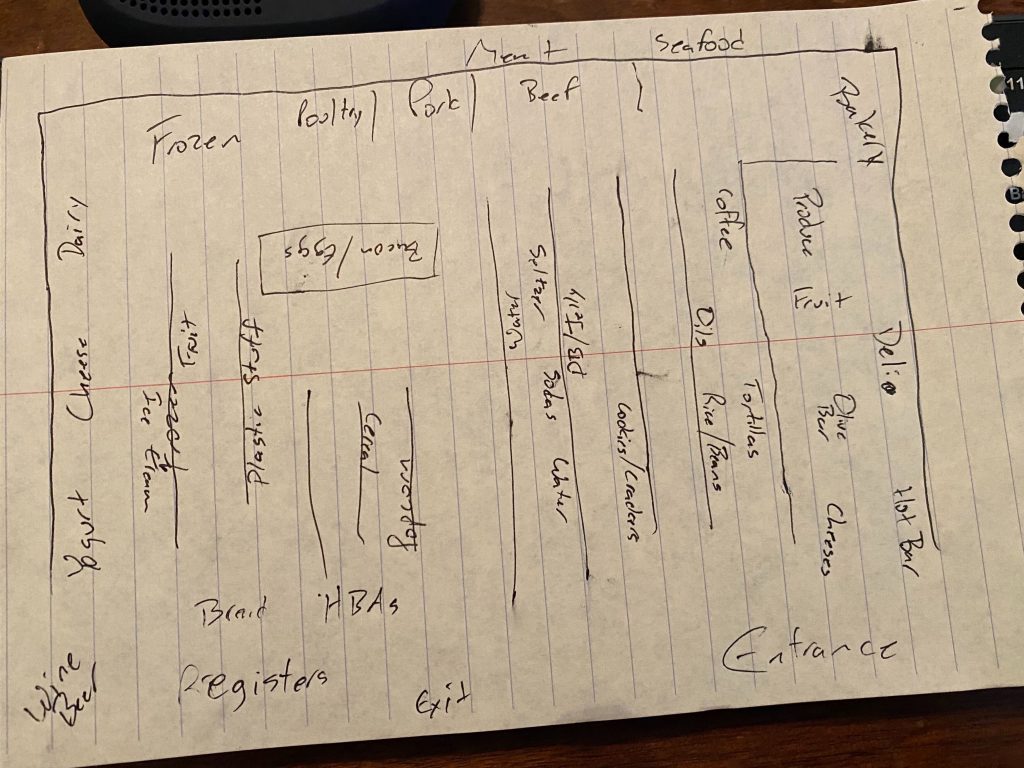 Meat
Seafood
Poultry
Pork
Beef
Bakery
Frozen
Dairy
Cheese
Yogurt
Wine
Beer
Bacon/Eggs
Fruit
Ice Cream
Plastic Stuff
Cereal
Seltzer
Water
Sodas
Water
PB/Jelly
Cookies/Crackers
Coffee
Oils
Rice/Beans
Tortillas
Produce
Olive
Bar
Cheeses
Deli
Hot Bar
Bread
HBAs
Registers
Exit
Entrance
11